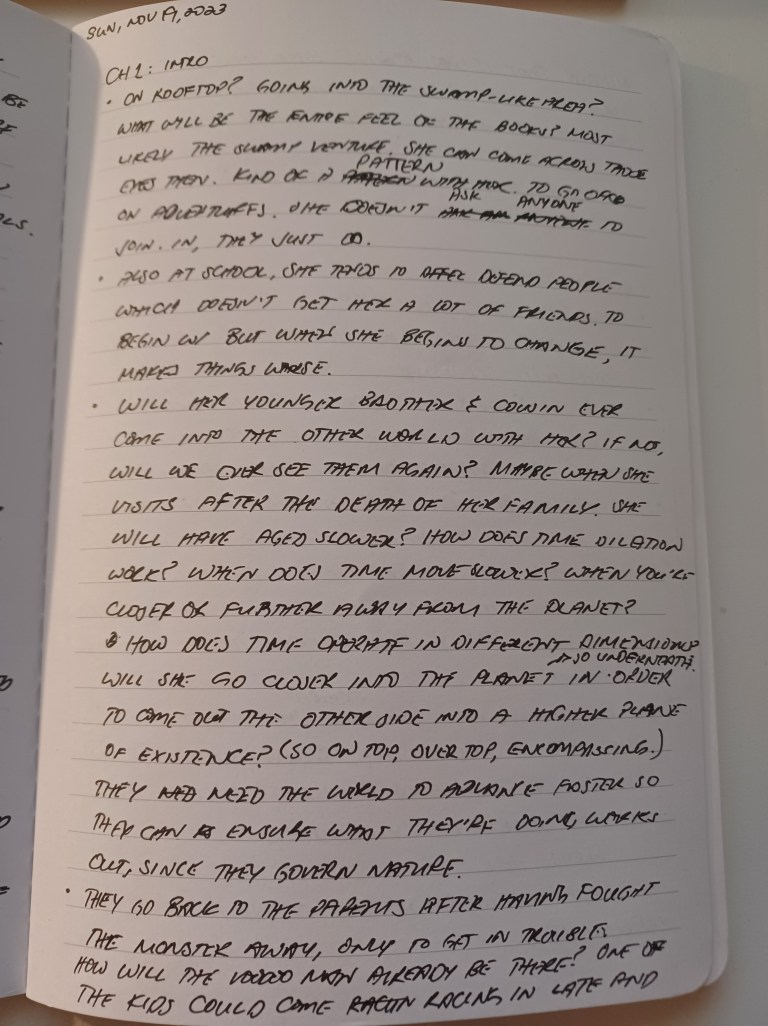 SUN, NOV 19, 2023
CH 1: INTRO
• ON ROOFTOP? GOING INTO THE SWAMP-LIKE AREA?
WHAT WILL BE THE ENTIRE FEEL OF THE BOOKS? MOST
LIKELY THE SWAMP VENTURE. SHE CAN COME ACROSS THOSE
PATTERN
EYES THEN. KIND OF A WITH HER. TO GO OFF
ASK ANYONE
ON ADVENTURES. SHE DOESN'T TO
JOIN. IN, THEY JUST DO.
• ALSO AT SCHOOL, SHE TENDS TO DEFEND PEOPLE
WHICH DOESN'T GET HER A LOT OF FRIENDS. TO
BEGIN W/ BUT WHEN SHE BEGINS TO CHANGE, IT
MAKES THINGS WORSE.
• WILL HER YOUNGER BROTHER & COUSIN EVER
COME INTO THE OTHER WORLD WITH HER? IF NO,
WILL WE EVER SEE THEM AGAIN? MAYBE WHEN SHE
VISITS AFTER THE DEATH OF HER FAMILY. SHE
WILL HAVE AGED SLOWER? HOW DOES TIME DILATION
WORK? WHEN DOES TIME MOVE SLOWER? WHEN YOU'RE
CLOSER OR FURTHER AWAY FROM THE PLANET?
• HOW DOES TIME OPERATE IN DIFFERENT DIMENSIONS?
SO UNDERNEATH.
WILL SHE GO CLOSER INTO THE PLANET IN ORDER
TO COME OUT THE OTHER SIDE INTO A HIGHER PLANE
OF EXISTENCE? (SO ON TOP, OVER TOP, ENCOMPASSING.)
THEY NEED THE WORLD TO ADVANCE FASTER SO
THEY CAN ENSURE WHAT THEY'RE DOING WORKS
OUT, SINCE THEY GOVERN NATURE.
• THEY GO BACK TO THE PARENTS AFTER HAVING FOUGHT
THE MONSTER AWAY, ONLY TO GET IN TROUBLE.
HOW WILL THE VOODOO MAN ALREADY BE THERE? ONE OF
THE KIDS COULD COME RACING IN LATE AND